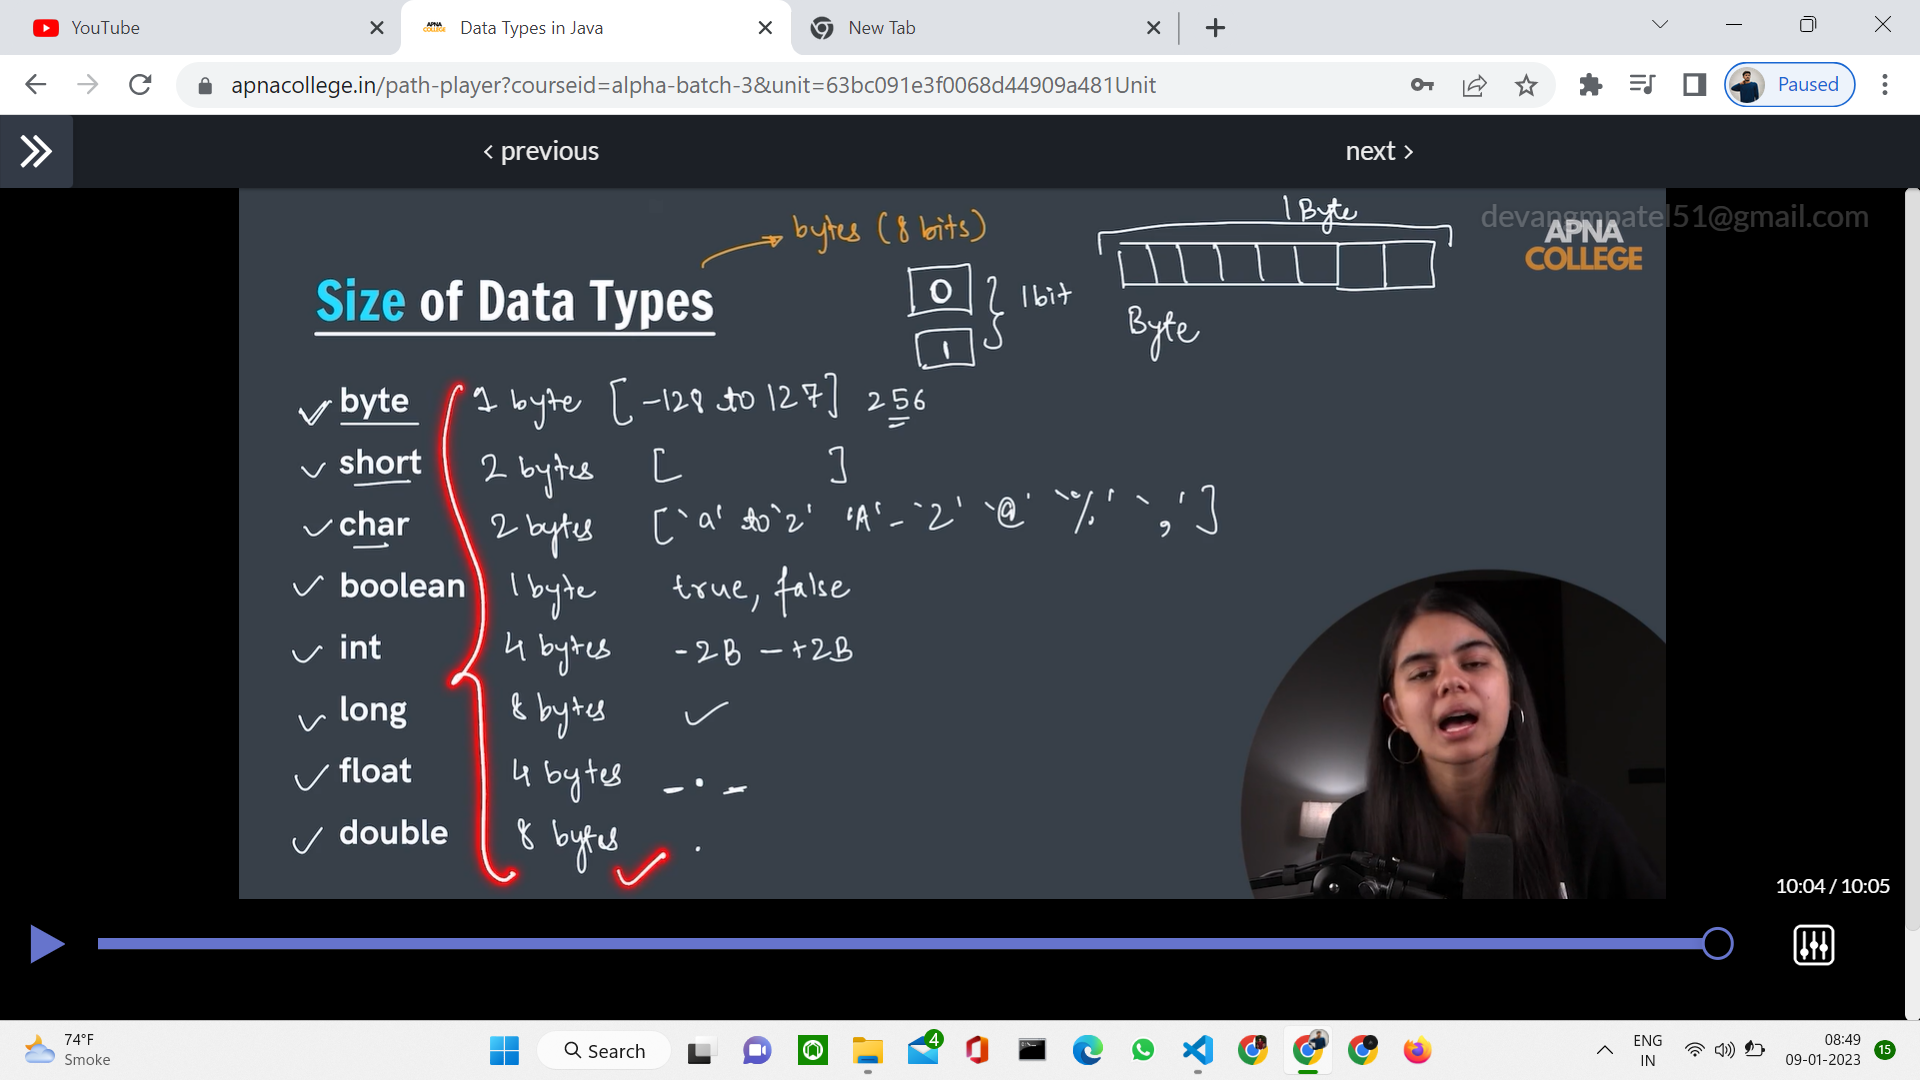 YouTube
Data Types in Java
New Tab
apnacollege.in/path-player?courseid=alpha-batch-3&unit=63bc091e3f0068d44909a481Unit
Paused
‹ previous
next ›
devangmpatel51@gmail.com
APNA
COLLEGE
bytes (8 bits)
1 Byte
Size of Data Types
0
1
1bit
Byte
byte 1 byte [-128 to 127] 256
short 2 bytes [ ]
char 2 bytes [‘a’ to ‘z’ ‘A’ - ‘Z’ ‘@’ ‘%’ ‘,’]
boolean 1 byte true, false
int 4 bytes -2B — +2B
long 8 bytes
float 4 bytes _._
double 8 bytes .
10:04 / 10:05
74°F
Smoke
Search
4
ENG
IN
08:49
09-01-2023
15